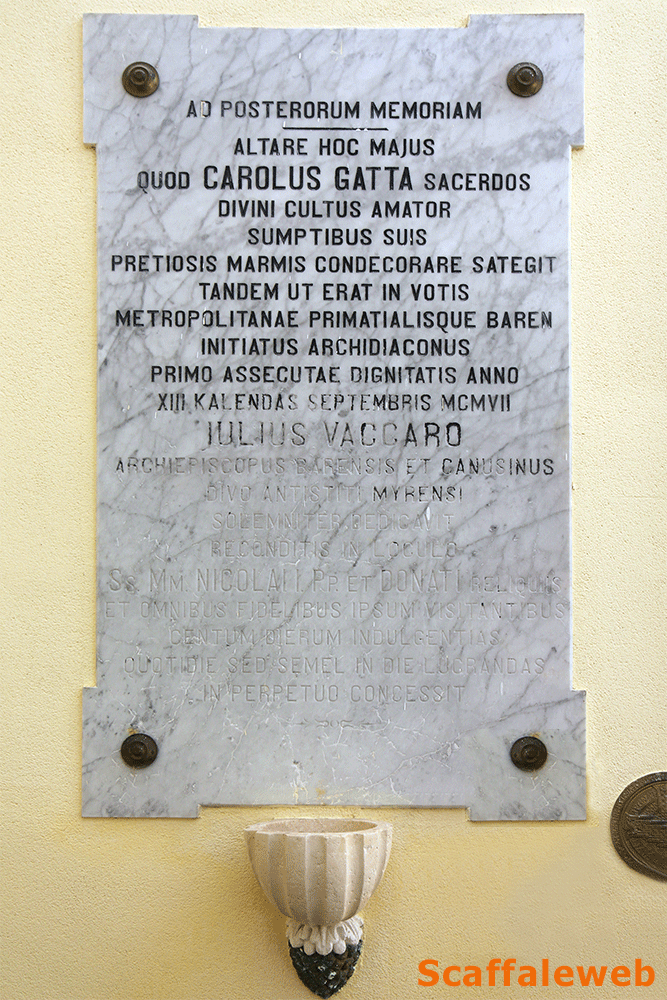 AD POSTERORUM MEMORIAM
ALTARE HOC MAJUS
QUOD CAROLUS GATTA SACERDOS
DIVINI CULTUS AMATOR
SUMPTIBUS SUIS
PRETIOSIS MARMIS CONDECORARE SATEGIT
TANDEM UT ERAT IN VOTIS
METROPOLITANAE PRIMATIALISQUE BAREN
INITIATUS ARCHIDIACONUS
PRIMO ASSECUTAE DIGNITATIS ANNO
XIII KALENDAS SEPTEMBRIS MCMVII
IULIUS VACCARO
ARCHIEPISCOPUS BARENSIS ET CANUSINUS
DIVO ANTISTITI MYRENSI
SOLEMNITER DEDICAVIT
RECONDITIS IN LOCULO
SS. MM. NICOLAI I. PP. ET DONATI RELIQUIIS
ET OMNIBUS FIDELIBUS IPSUM VISITANTIBUS
CENTUM DIERUM INDULGENTIAS
QUOTIDIE SED SEMEL IN DIE LUCRANDAS
IN PERPETUO CONCESSIT
Scaffaleweb